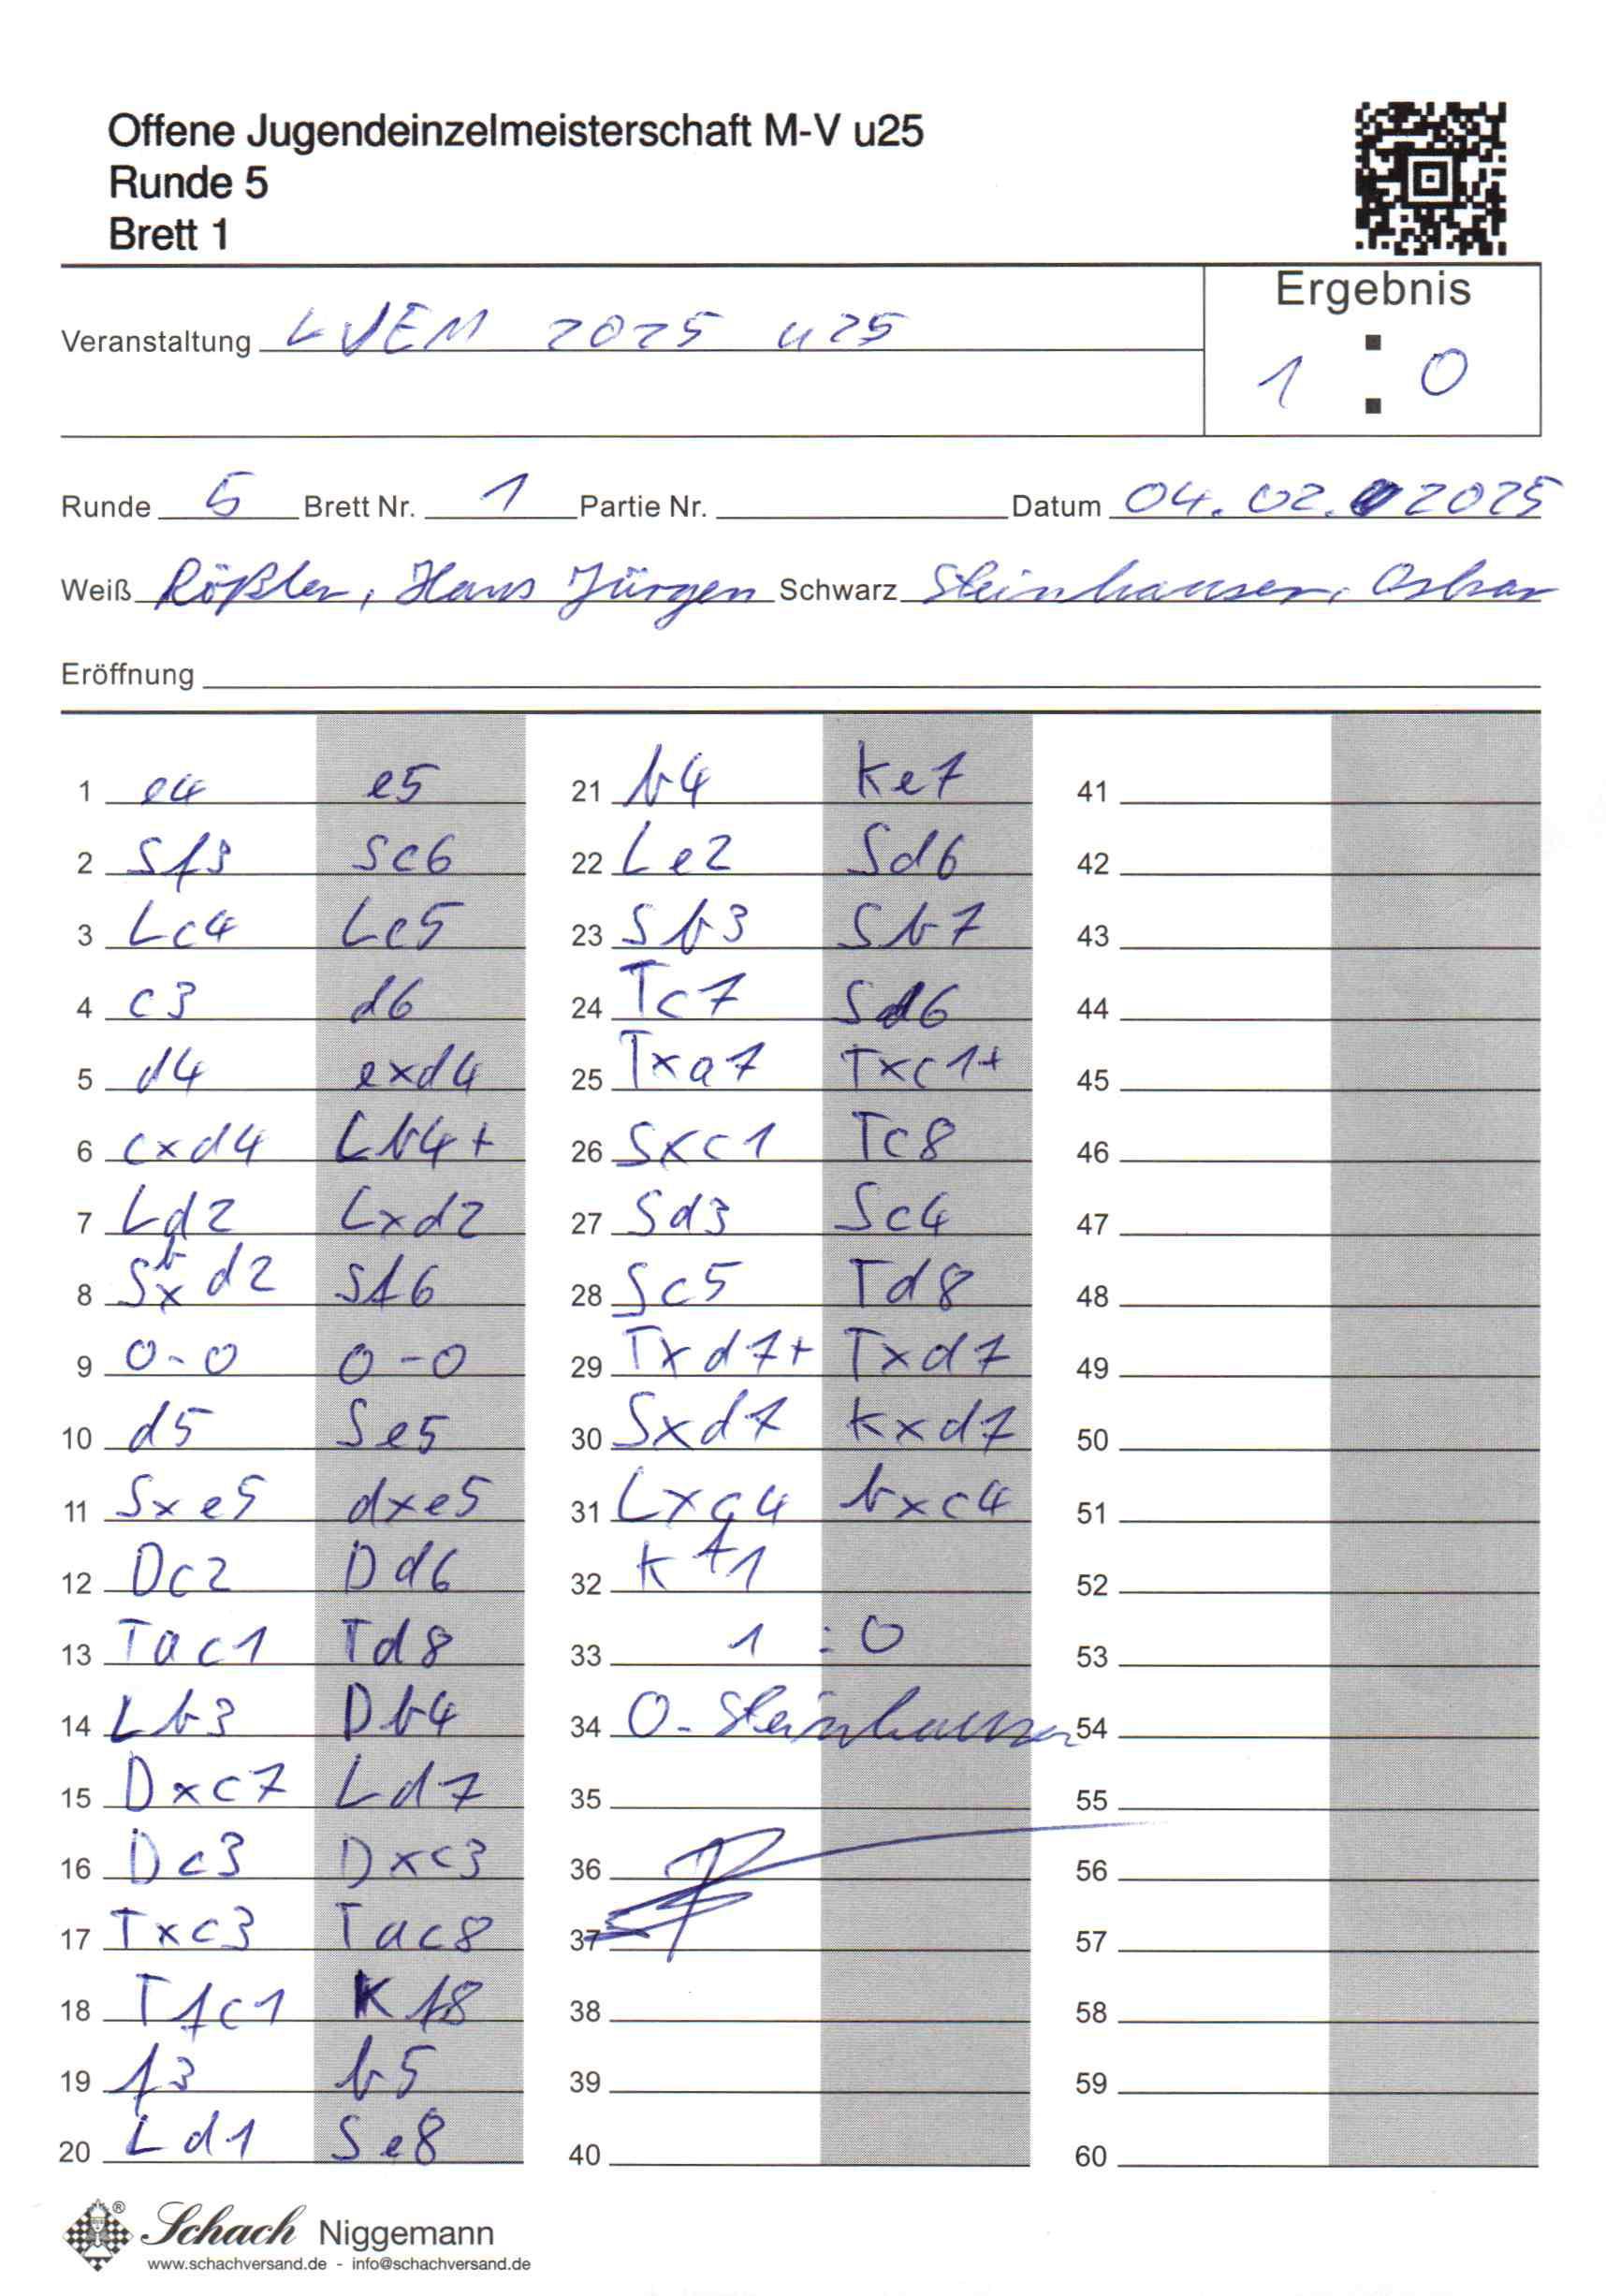 Offene Jugendeinzelmeisterschaft M-V u25
Runde 5
Brett 1
Ergebnis
Veranstaltung LJEM 2025 u25
1 : 0
Runde 5 Brett Nr. 1 Partie Nr. Datum 04.02.2025
Weiß Rößler, Hans Jürgen Schwarz Steinhauser, Oskar
Eröffnung
1 e4 e5
2 Sf3 Sc6
3 Lc4 Lc5
4 c3 d6
5 d4 exd4
6 cxd4 Lb4+
7 Ld2 Lxd2
8 Sbxd2 Sf6
9 0-0 0-0
10 d5 Se5
11 Sxe5 dxe5
12 Dc2 Dd6
13 Tac1 Td8
14 Lb3 Db4
15 Dxc7 Ld7
16 Dc3 Dxc3
17 Txc3 Tac8
18 Tfc1 Kf8
19 f3 b5
20 Ld1 Se8
21 b4 Ke7
22 Le2 Sd6
23 Sb3 Sb7
24 Tc7 Sd6
25 Txa7 Txc1+
26 Sxc1 Tc8
27 Sd3 Sc4
28 Sc5 Td8
29 Txd7+ Txd7
30 Sxd7 Kxd7
31 Lxc4 bxc4
32 Kf1
33 1 : 0
34 O. Steinhauser
35
36
37
38
39
40
41
42
43
44
45
46
47
48
49
50
51
52
53
54
55
56
57
58
59
60
Schach Niggemann
www.schachversand.de - info@schachversand.de